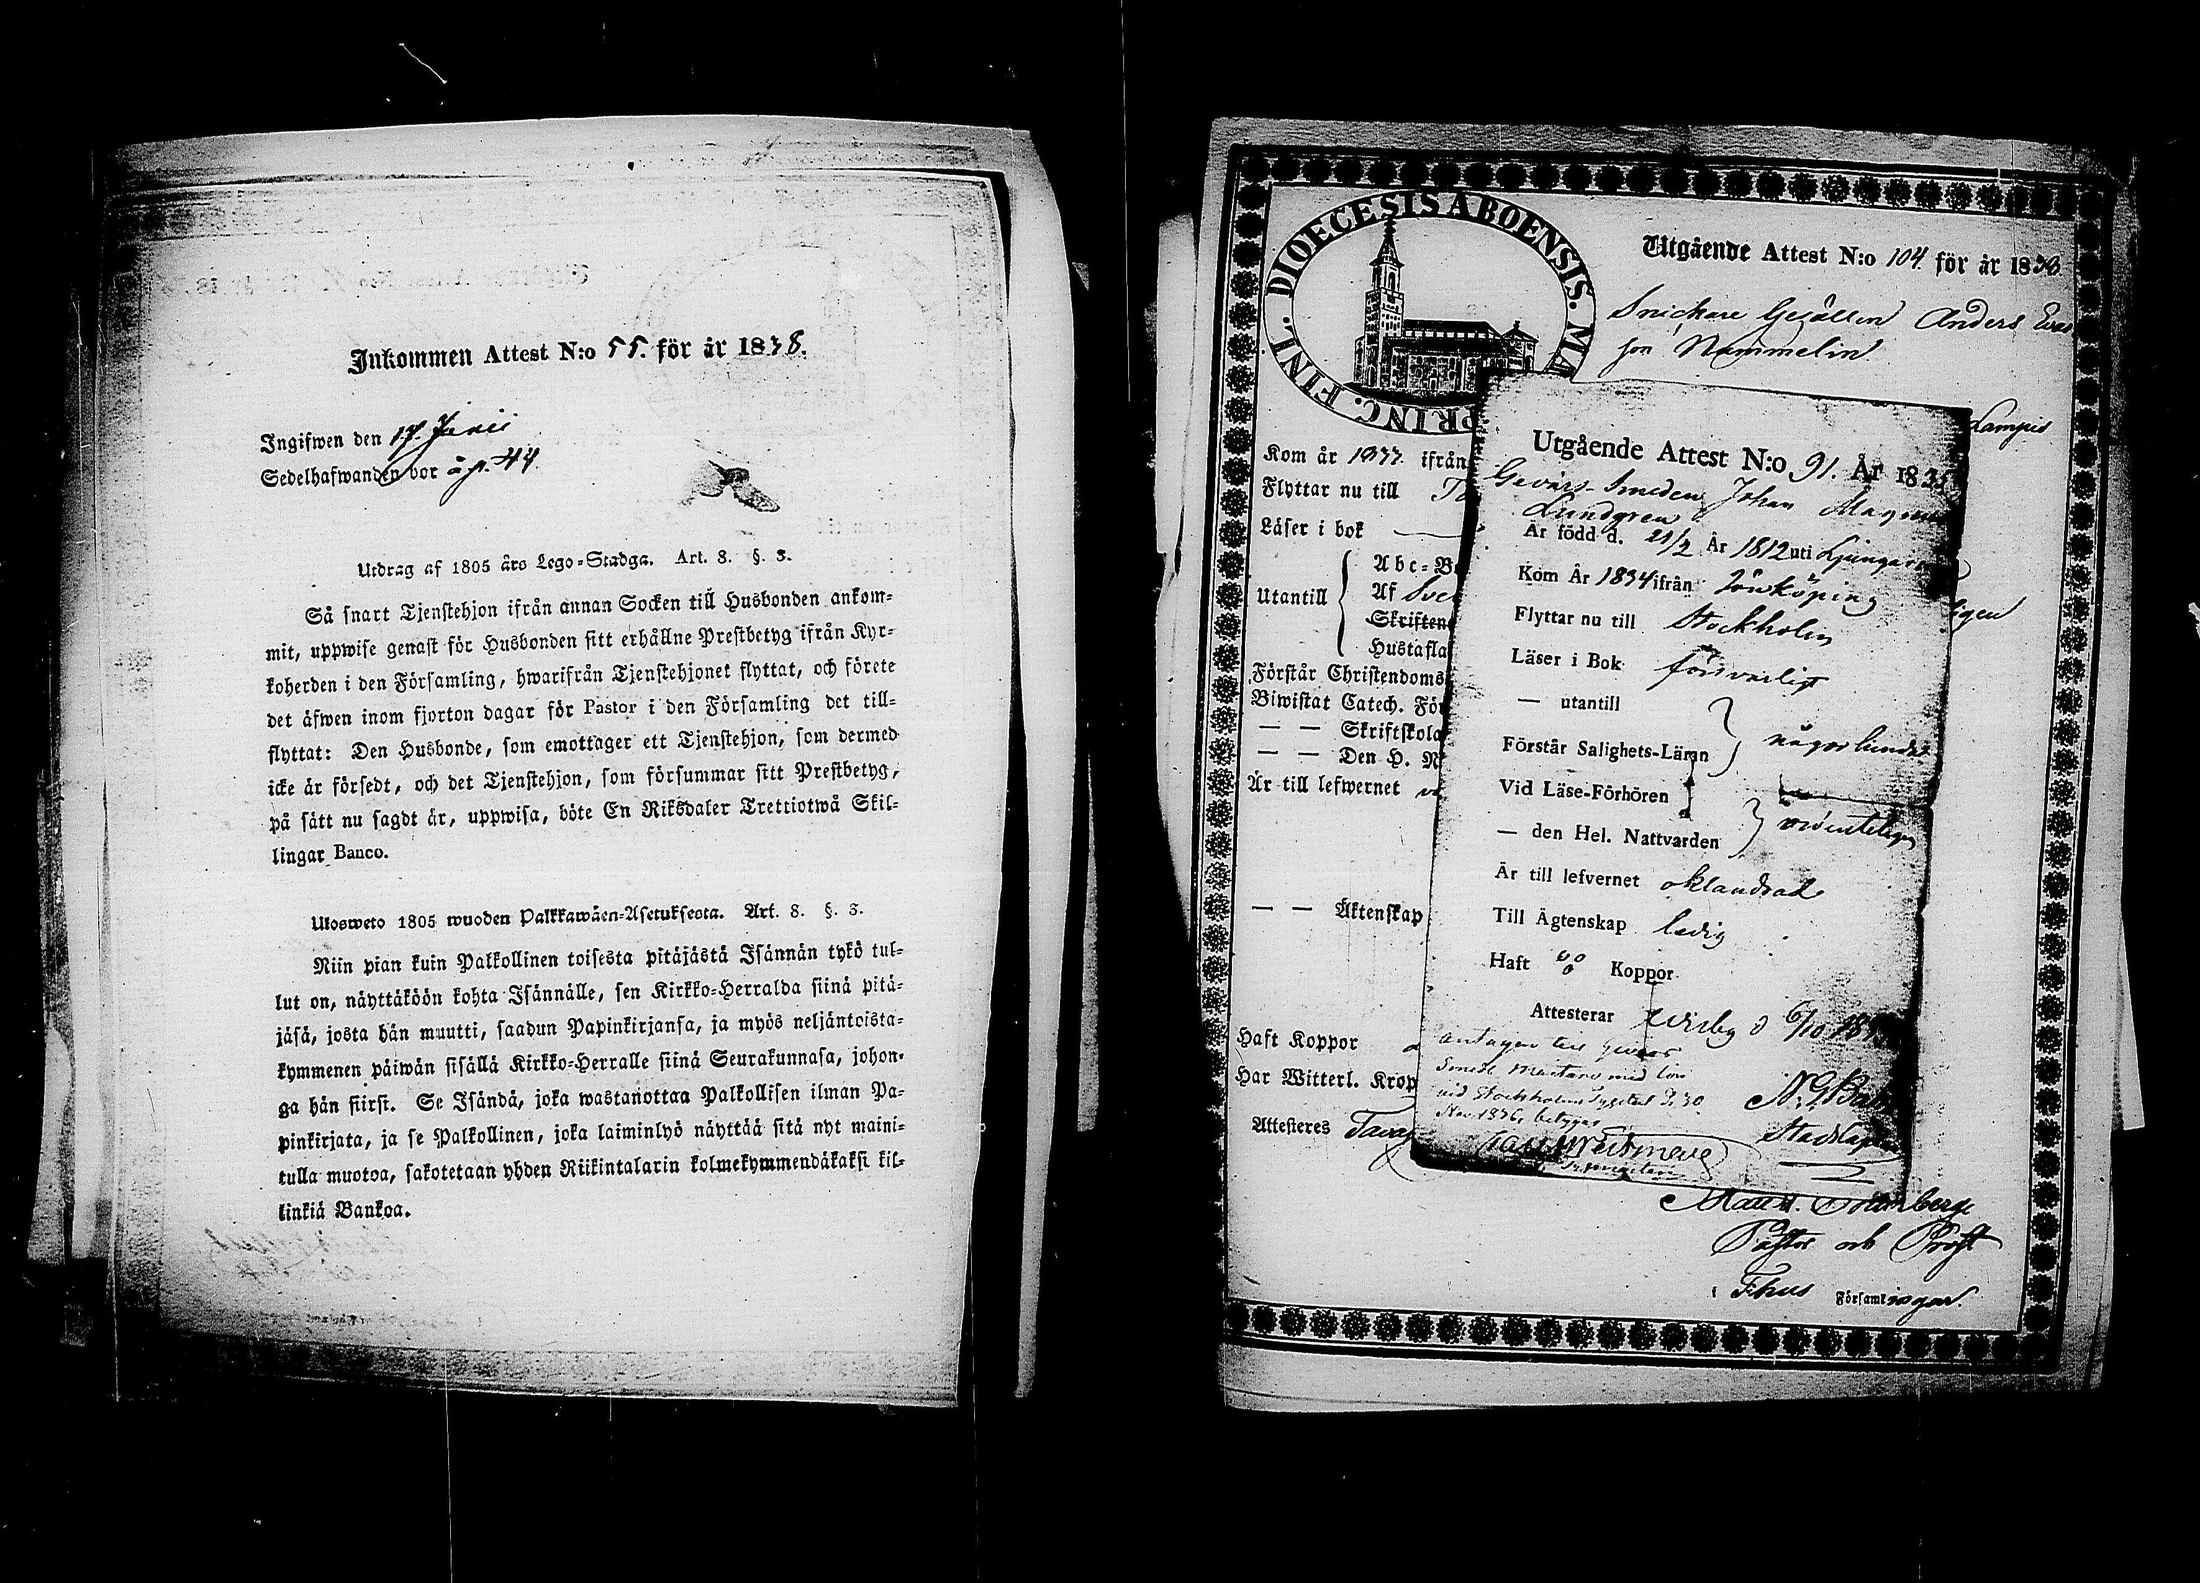 Inkommen Attest N:o 55. för år 1838.
Ingifwen den 17 Junii
Sedelhafwanden bor å p. 44.
Utdrag af 1805 års Lego-Stadga. Art. 8. §. 3.
Så snart Tjenstehjon ifrån annan Socken till Husbonden ankom-
mit, uppwise genast för Husbonden sitt erhållne Prestbetyg ifrån Kyr-
koherden i den Församling, hwarifrån Tjenstehjonet flyttat, och förete
det äfwen inom fjorton dagar för Pastor i den Församling det till-
flyttat: Den Husbonde, som emottager ett Tjenstehjon, som dermed
icke är försedt, och det Tjenstehjon, som försummar sitt Prestbetyg,
på sätt nu sagdt är, uppwisa, böte En Riksdaler Trettiotwå Skil-
lingar Banco.
Ulosweto 1805 wuoden Palkkawäen-Asetuksesta. Art. 8. §. 3.
Niin pian kuin Palkollinen toisesta pitäjästä Isännän tykö tul-
lut on, näyttäköön kohta Isännälle, sen Kirkko-Herralda siinä pitä-
jäsä, josta hän muutti, saadun Papinkirjansa, ja myös neljäntoista-
kymmenen päiwän sisällä Kirkko-Herralle siinä Seurakunnasa, johon-
ga hän siirsi. Se Isändä, joka wastanottaa Palkollisen ilman Pa-
pinkirjata, ja se Palkollinen, joka laiminlyö näyttää sitä nyt maini-
tulla muotoa, sakotetaan yhden Riikintalarin kolmekymmendäkaksi kil-
linkiä Bankoa.
DIOECESIS ABOENSIS. MA
PRINC. FINL.
Utgående Attest N:o 104. för år 1838
Snickare Gesällen Anders
son Nummelin
Kom år ifrån
Flyttar nu till
Läser i bok
Utantill
Abc-B
Af Sve
Skriften
Hustafla
Förstår Christendoms
Biwistat Catech. För
— — Skriftskola
— — Den H. N
Är till lefwernet
— — Äktenskap
Haft Koppor
Har Witterl. Krop
Attesteres
Utgående Attest N:o 91. År 183
Gevärs-Smeden Johan Magnus
Lundgren
Är född d. 21/2 År 1812 uti
Kom År 1834 ifrån Jönköping
Flyttar nu till Stockholm
Läser i Bok försvarligt
— utantill
Förstår Salighets-Läran någorlunda
Vid Läse-Förhören
— den Hel. Nattvarden ordenteligen
Är till lefvernet oklandrade
Till Ägtenskap ledig
Haft Koppor
Attesterar Wisby d 6/10
antagen till Gevärs
Smede Mästare med lön
Nov 1836, betygar
Pastor och Prost
i Församlingar.